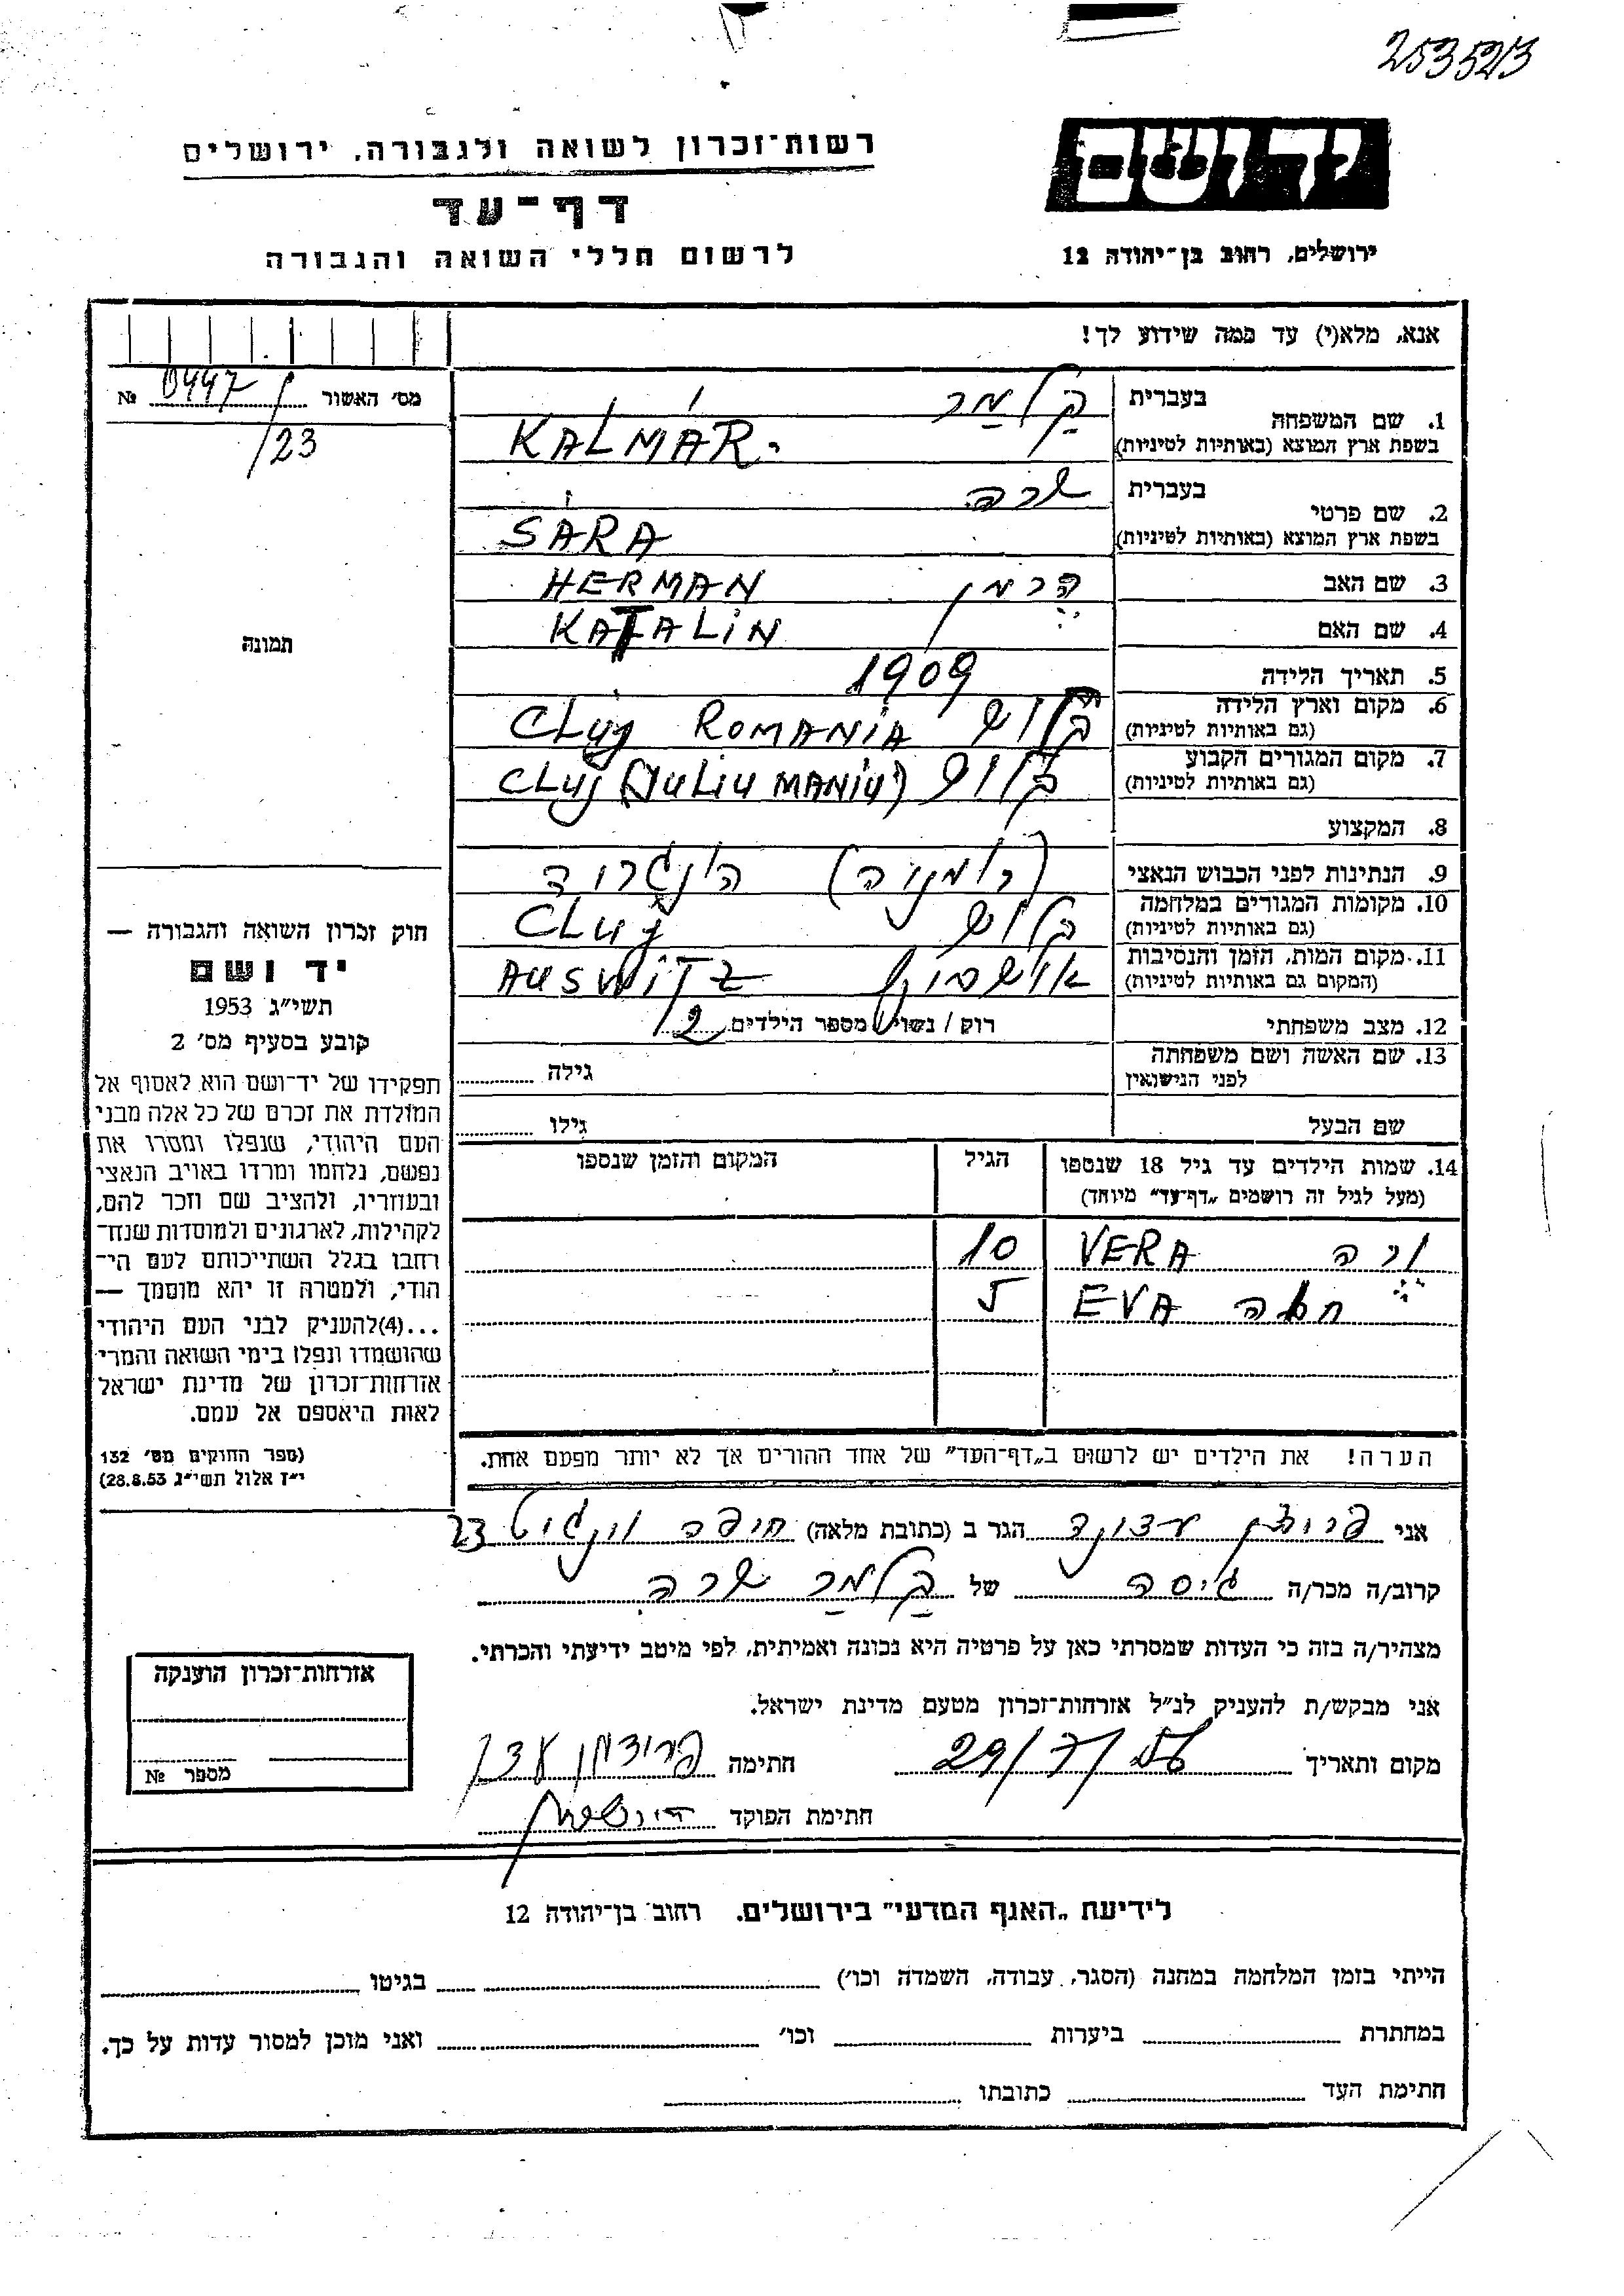 253523
יד ושם
רשות-זכרון לשואה ולגבורה, ירושלים
דף-עד
לרשום חללי השואה והגבורה
ירושלים, רחוב בן-יהודה 12
אנא, מלא(י) עד כמה שידוע לך!
מס' האשור 0447 №
/23
תמונה
1. שם המשפחה בעברית קַלמַר
בשפת ארץ המוצא (באותיות לטיניות) KÁLMÁR.
2. שם פרטי בעברית שרה
בשפת ארץ המוצא (באותיות לטיניות) SÁRA
3. שם האב הרמן HERMAN
4. שם האם KATALIN
5. תאריך הלידה 1909
6. מקום וארץ הלידה קלוש CLUJ ROMANIA
(גם באותיות לטיניות)
7. מקום המגורים הקבוע קלוש CLUJ (JULIU MANIU)
(גם באותיות לטיניות)
8. המקצוע
9. הנתינות לפני הכבוש הנאצי (רומניה) הונגריה
10. מקומות המגורים במלחמה קלוש CLUJ
(גם באותיות לטיניות)
11. מקום המות, הזמן והנסיבות AUSWITZ
(המקום גם באותיות לטיניות)
12. מצב משפחתי רוק / נשוי מספר הילדים 2
13. שם האשה ושם משפחתה גילה
לפני הנישואין
שם הבעל גילו
14. שמות הילדים עד גיל 18 שנספו הגיל המקום והזמן שנספו
(מעל לגיל זה רושמים "דף-עד" מיוחד)
ורה VERA 10
חוה EVA 5
חוק זכרון השואה והגבורה —
יד ושם
תשי"ג 1953
קובע בסעיף מס' 2
תפקידו של יד-ושם הוא לאסוף אל
המולדת את זכרם של כל אלה מבני
העם היהודי, שנפלו ומסרו את
נפשם, נלחמו ומרדו באויב הנאצי
ובעוזריו, ולהציב שם וזכר להם,
לקהילות, לארגונים ולמוסדות שנח-
רבו בגלל השתייכותם לעם הי-
הודי, ולמטרה זו יהא מוסמך —
...(4)להעניק לבני העם היהודי
שהושמדו ונפלו בימי השואה והמרי
אזרחות-זכרון של מדינת ישראל
לאות היאספם אל עמם.
(ספר החוקים מס' 132
י"ז אלול תשי"ג 28.8.53)
הערה! את הילדים יש לרשום ב"דף-העד" של אחד ההורים אך לא יותר מפעם אחת.
אני הגר ב (כתובת מלאה) חיפה וינגיט 23
קרוב/ה מכר/ה גיסה של קַלמַר שרה
מצהיר/ה בזה כי העדות שמסרתי כאן על פרטיה היא נכונה ואמיתית, לפי מיטב ידיעתי והכרתי.
אני מבקש/ת להעניק לנ"ל אזרחות-זכרון מטעם מדינת ישראל.
מקום ותאריך 29/7/56 חתימה
חתימת הפוקד
אזרחות-זכרון הוענקה
מספר №
לידיעת "האגף המדעי" בירושלים. רחוב בן-יהודה 12
הייתי בזמן המלחמה במחנה (הסגר, עבודה, השמדה וכו') בגיטו
במחתרת ביערות וכו' ואני מוכן למסור עדות על כך.
חתימת העד כתובתו